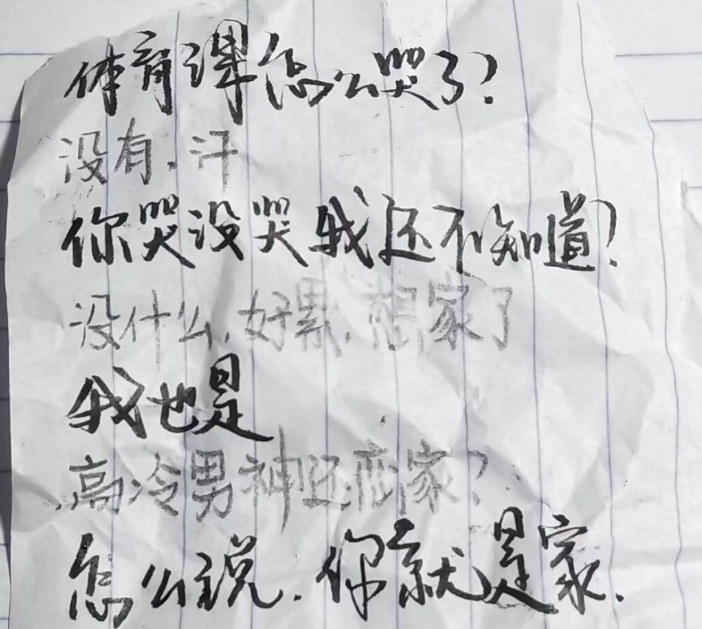 体育课怎么哭了?
没有,汗
你哭没哭我还不知道?
没什么,好累,想家了
我也是
高冷男神还恋家?
怎么说.你就是家.